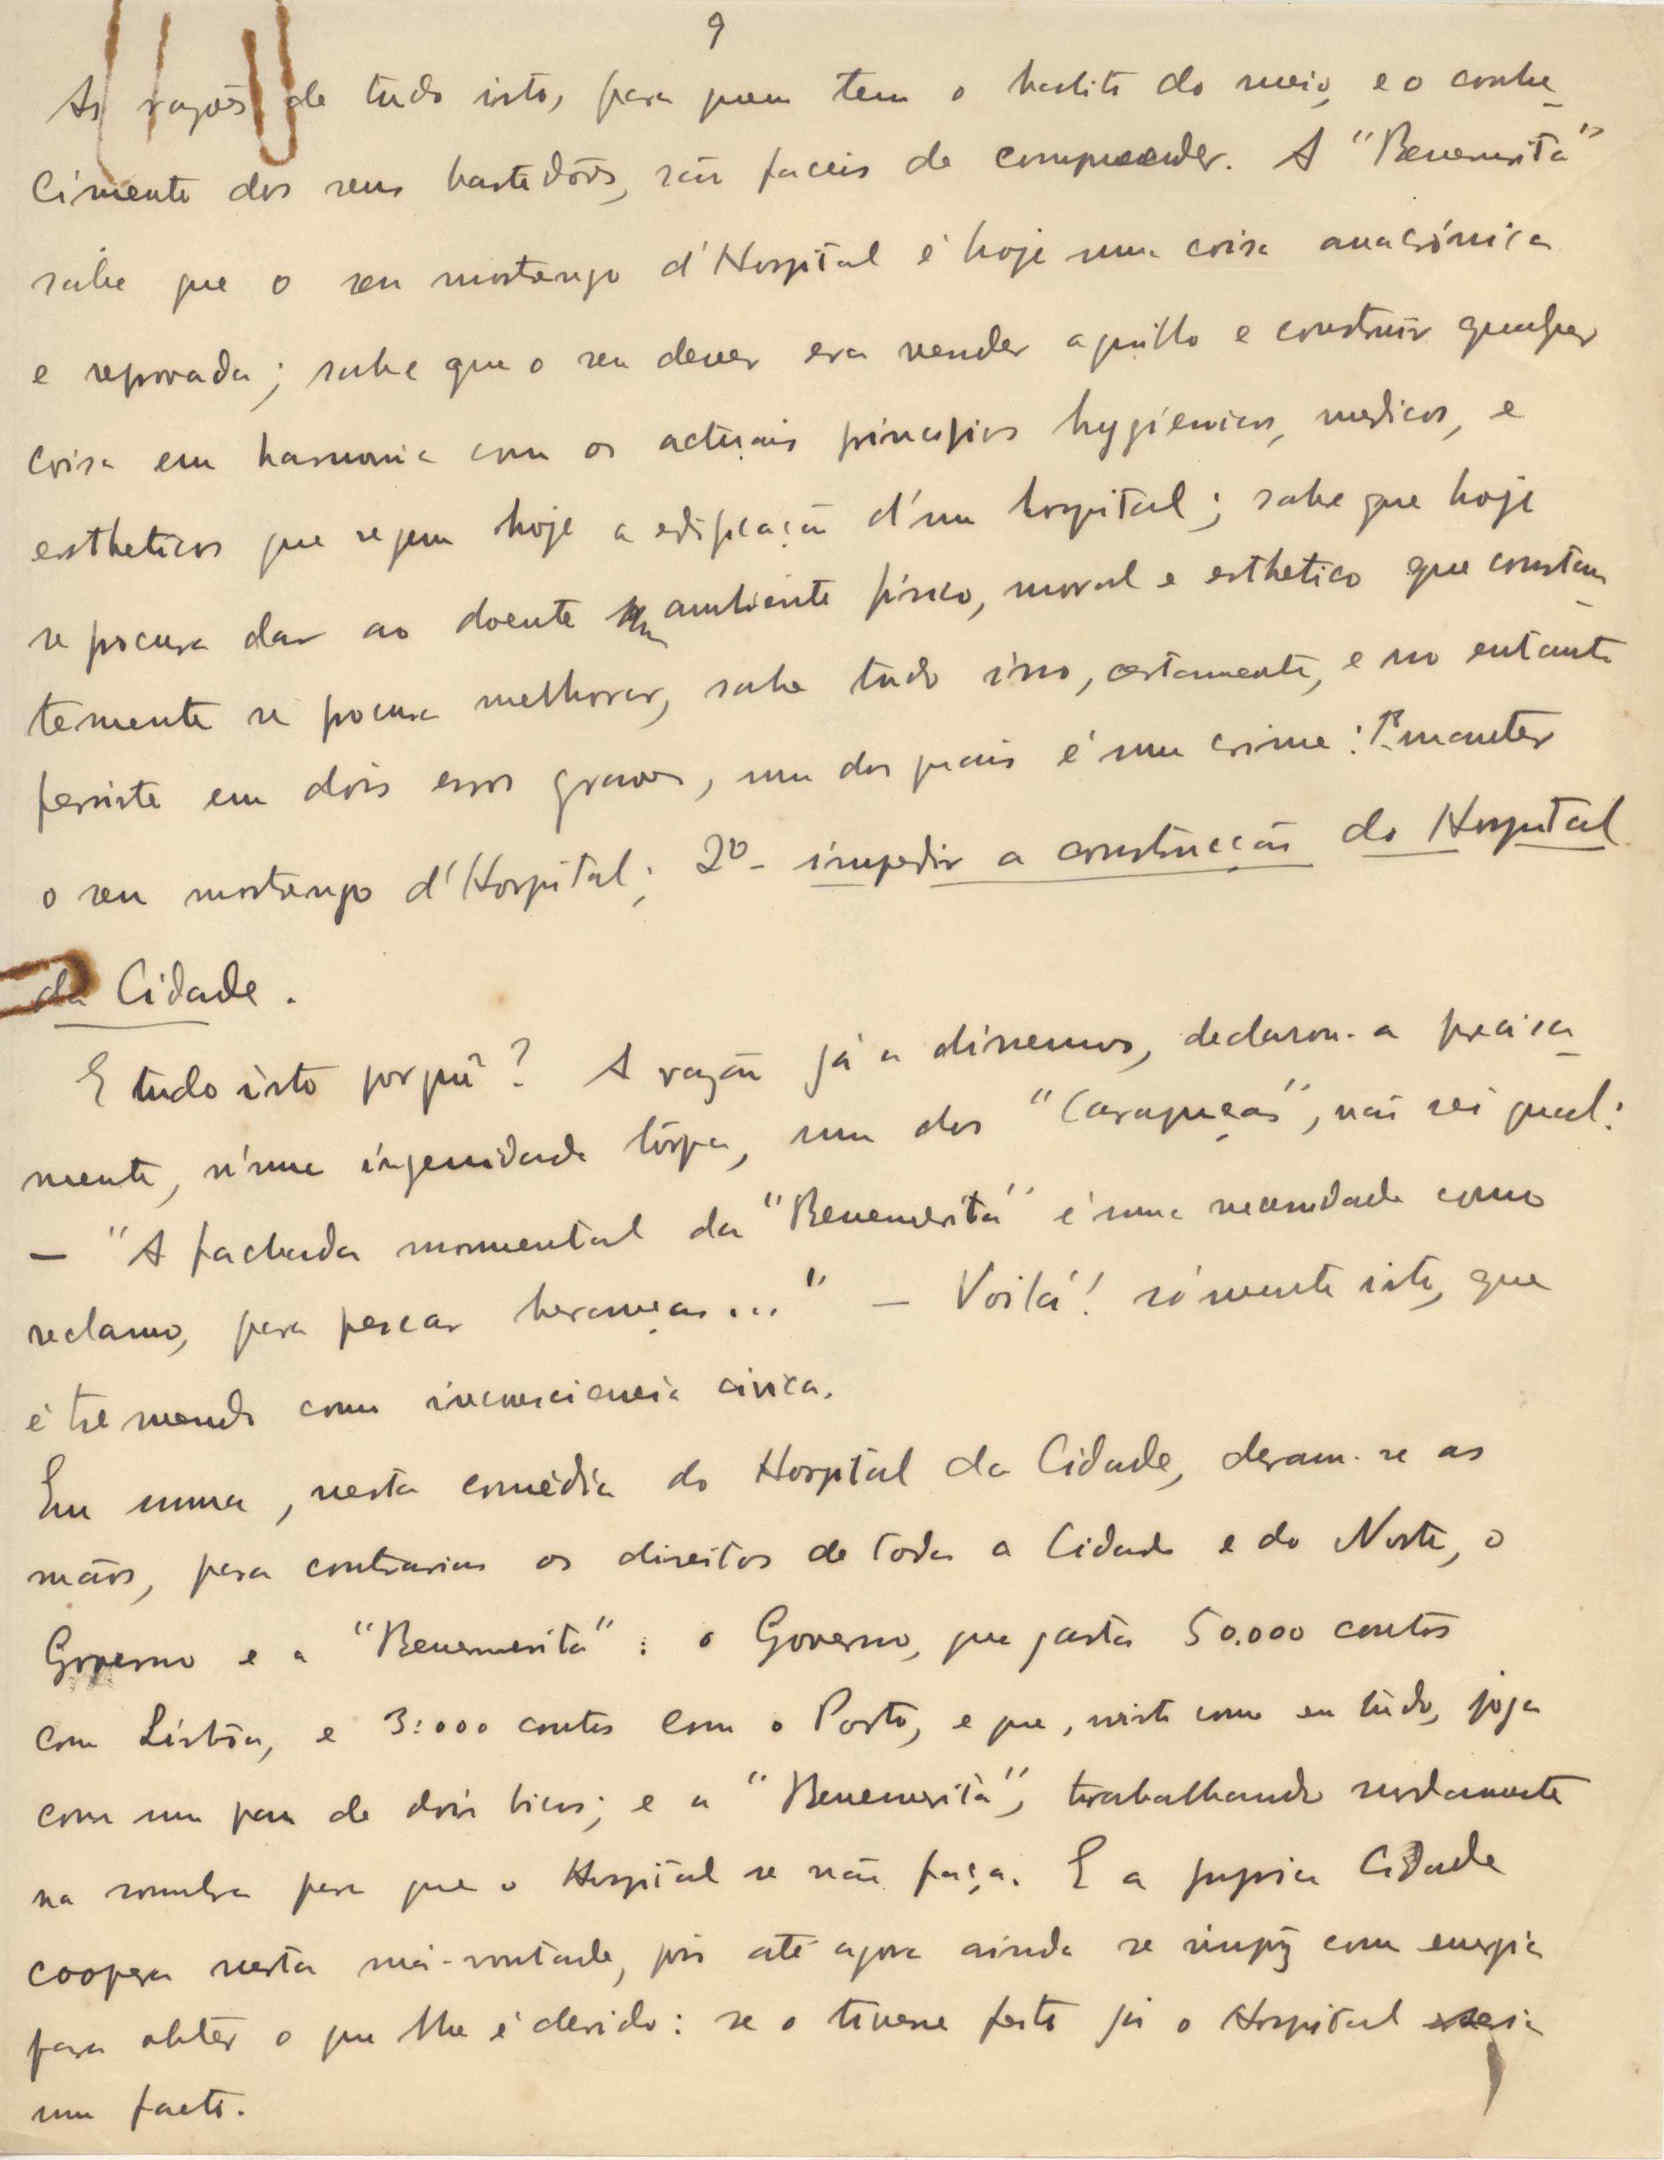 9
As razões de tudo isto, para quem tem o habito do meio, e o conhe-
cimento dos seus bastidôres, são faceis de compreender. A "Benemerita"
sabe que o seu mostrengo d'Hospital é hoje uma coisa anacrónica
e reprovada; sabe que o seu dever era vender aquillo e construir qualquer
coisa em harmonia com os actuais principios hygienicos, medicos, e
estheticos que regem hoje a edificação d'um hospital; sabe que hoje
se procura dar ao doente um ambiente físico, moral e esthetico que constan-
temente se procura melhorar, sabe tudo isso, certamente, e no entanto
persiste em dois erros graves, um dos quais é um crime: 1º- manter
o seu mostrengo d'Hospital; 2º- impedir a construcção do Hospital
da Cidade.
E tudo isto porquê? A razão já a dissemos, declarou-a precisa-
mente, n'uma ingenuidade tôrpe, um dos "Carapuças", não sei qual:
— "A fachada monumental da "Benemerita" é uma necessidade como
reclamo, para pescar heranças..." — Voilá! sómente isto, que
é tremendo como inconsciencia civica.
Em suma, nesta comédia do Hospital da Cidade, deram-se as
mãos, para contrariar os direitos de toda a Cidade e do Norte, o
Governo e a "Benemerita": o Governo, que gasta 50.000 contos
com Lisbôa, e 3:000 contos com o Porto, e que, nisto como em tudo, joga
com um pau de dois bicos; e a "Benemerita", trabalhando surdamente
na sombra para que o Hospital se não faça. E a propria Cidade
coopera nesta má-vontade, pois até agora ainda se impôz com energia
para obter o que lhe é devido: se o tivesse feito já o Hospital seria
um facto.